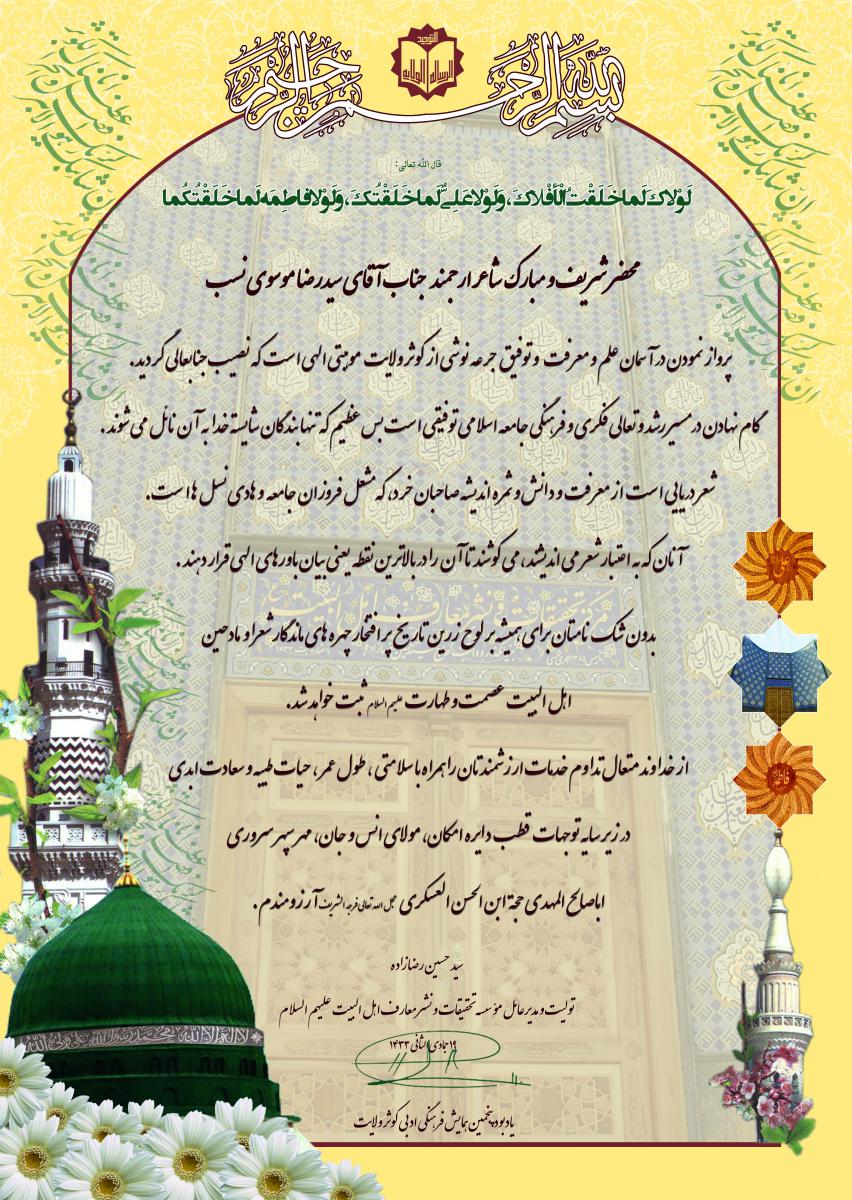 بسم الله الرحمن الرحیم
التوحید
الرساله الولایه
قال الله تعالی:
لَوْلاكَ لَما خَلَقْتُ الْأَفْلاكَ، وَلَوْلا عَلِيٌّ لَما خَلَقْتُكَ، وَلَوْلا فاطِمَه لَما خَلَقْتُكُما
محضر شریف و مبارک شاعر ارجمند جناب آقای سید رضا موسوی نسب
پرواز نمودن در آسمان علم و معرفت و توفیق جرعه نوشی از کوثر ولایت موهبتی الهی است که نصیب جنابعالی گردید.
گام نهادن در مسیر رشد و تعالی فکری و فرهنگی جامعه اسلامی توفیقی است بس عظیم که تنها بندگان شایسته خدا به آن نائل می شوند.
شعر دریایی است از معرفت و دانش و ثمره اندیشه صاحبان خرد، که مشعل فروزان جامعه و هادی نسل هاست.
آنان که به اعتبار شعر می اندیشند، می کوشند تا آن را در بالاترین نقطه یعنی بیان باورهای الهی قرار دهند.
بدون شک نامتان برای همیشه بر لوح زرین تاریخ پر افتخار چهره های ماندگار شعرا و مادحین
اهل البیت عصمت و طهارت علیهم السلام ثبت خواهد شد.
از خداوند متعال تداوم خدمات ارزشمندتان را همراه با سلامتی، طول عمر، حیات طیبه و سعادت ابدی
در زیر سایه توجهات قطب دایره امکان، مولای انس و جان، مهر سپهر سروری
اباصالح المهدی حجة ابن الحسن العسکری عجل الله تعالی فرجه الشریف آرزومندم.
سید حسین رضازاده
تولیت و مدیر عامل مؤسسه تحقیقات و نشر معارف اهل البیت علیهم السلام
۱۹ جمادی الثانی ۱۴۳۳
یادبود پنجمین همایش فرهنگی ادبی کوثر ولایت
علی
فاطمه